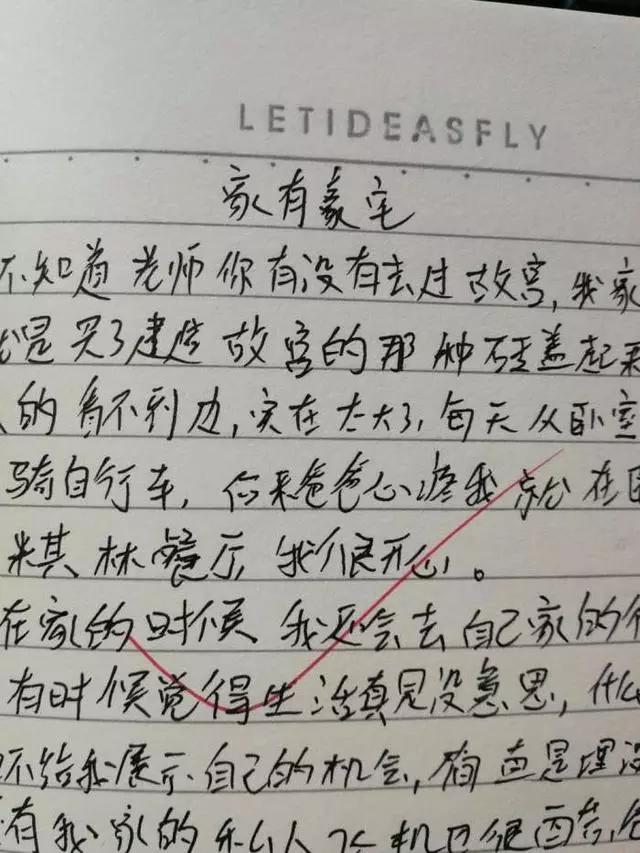 LETIDEASFLY
家有豪宅
不知道老师你有没有去过故宫,我家
就是买了建造故宫的那种砖盖起来
的看不到边,实在太大了,每天从卧室
骑自行车,后来爸爸心疼我就在
米其林餐厅,我很开心。
在家的时候我还会去自己家的
有时候觉得生活真是没意思,什么
不给我展示自己的机会,简直是埋没
有我家的私人飞机已经